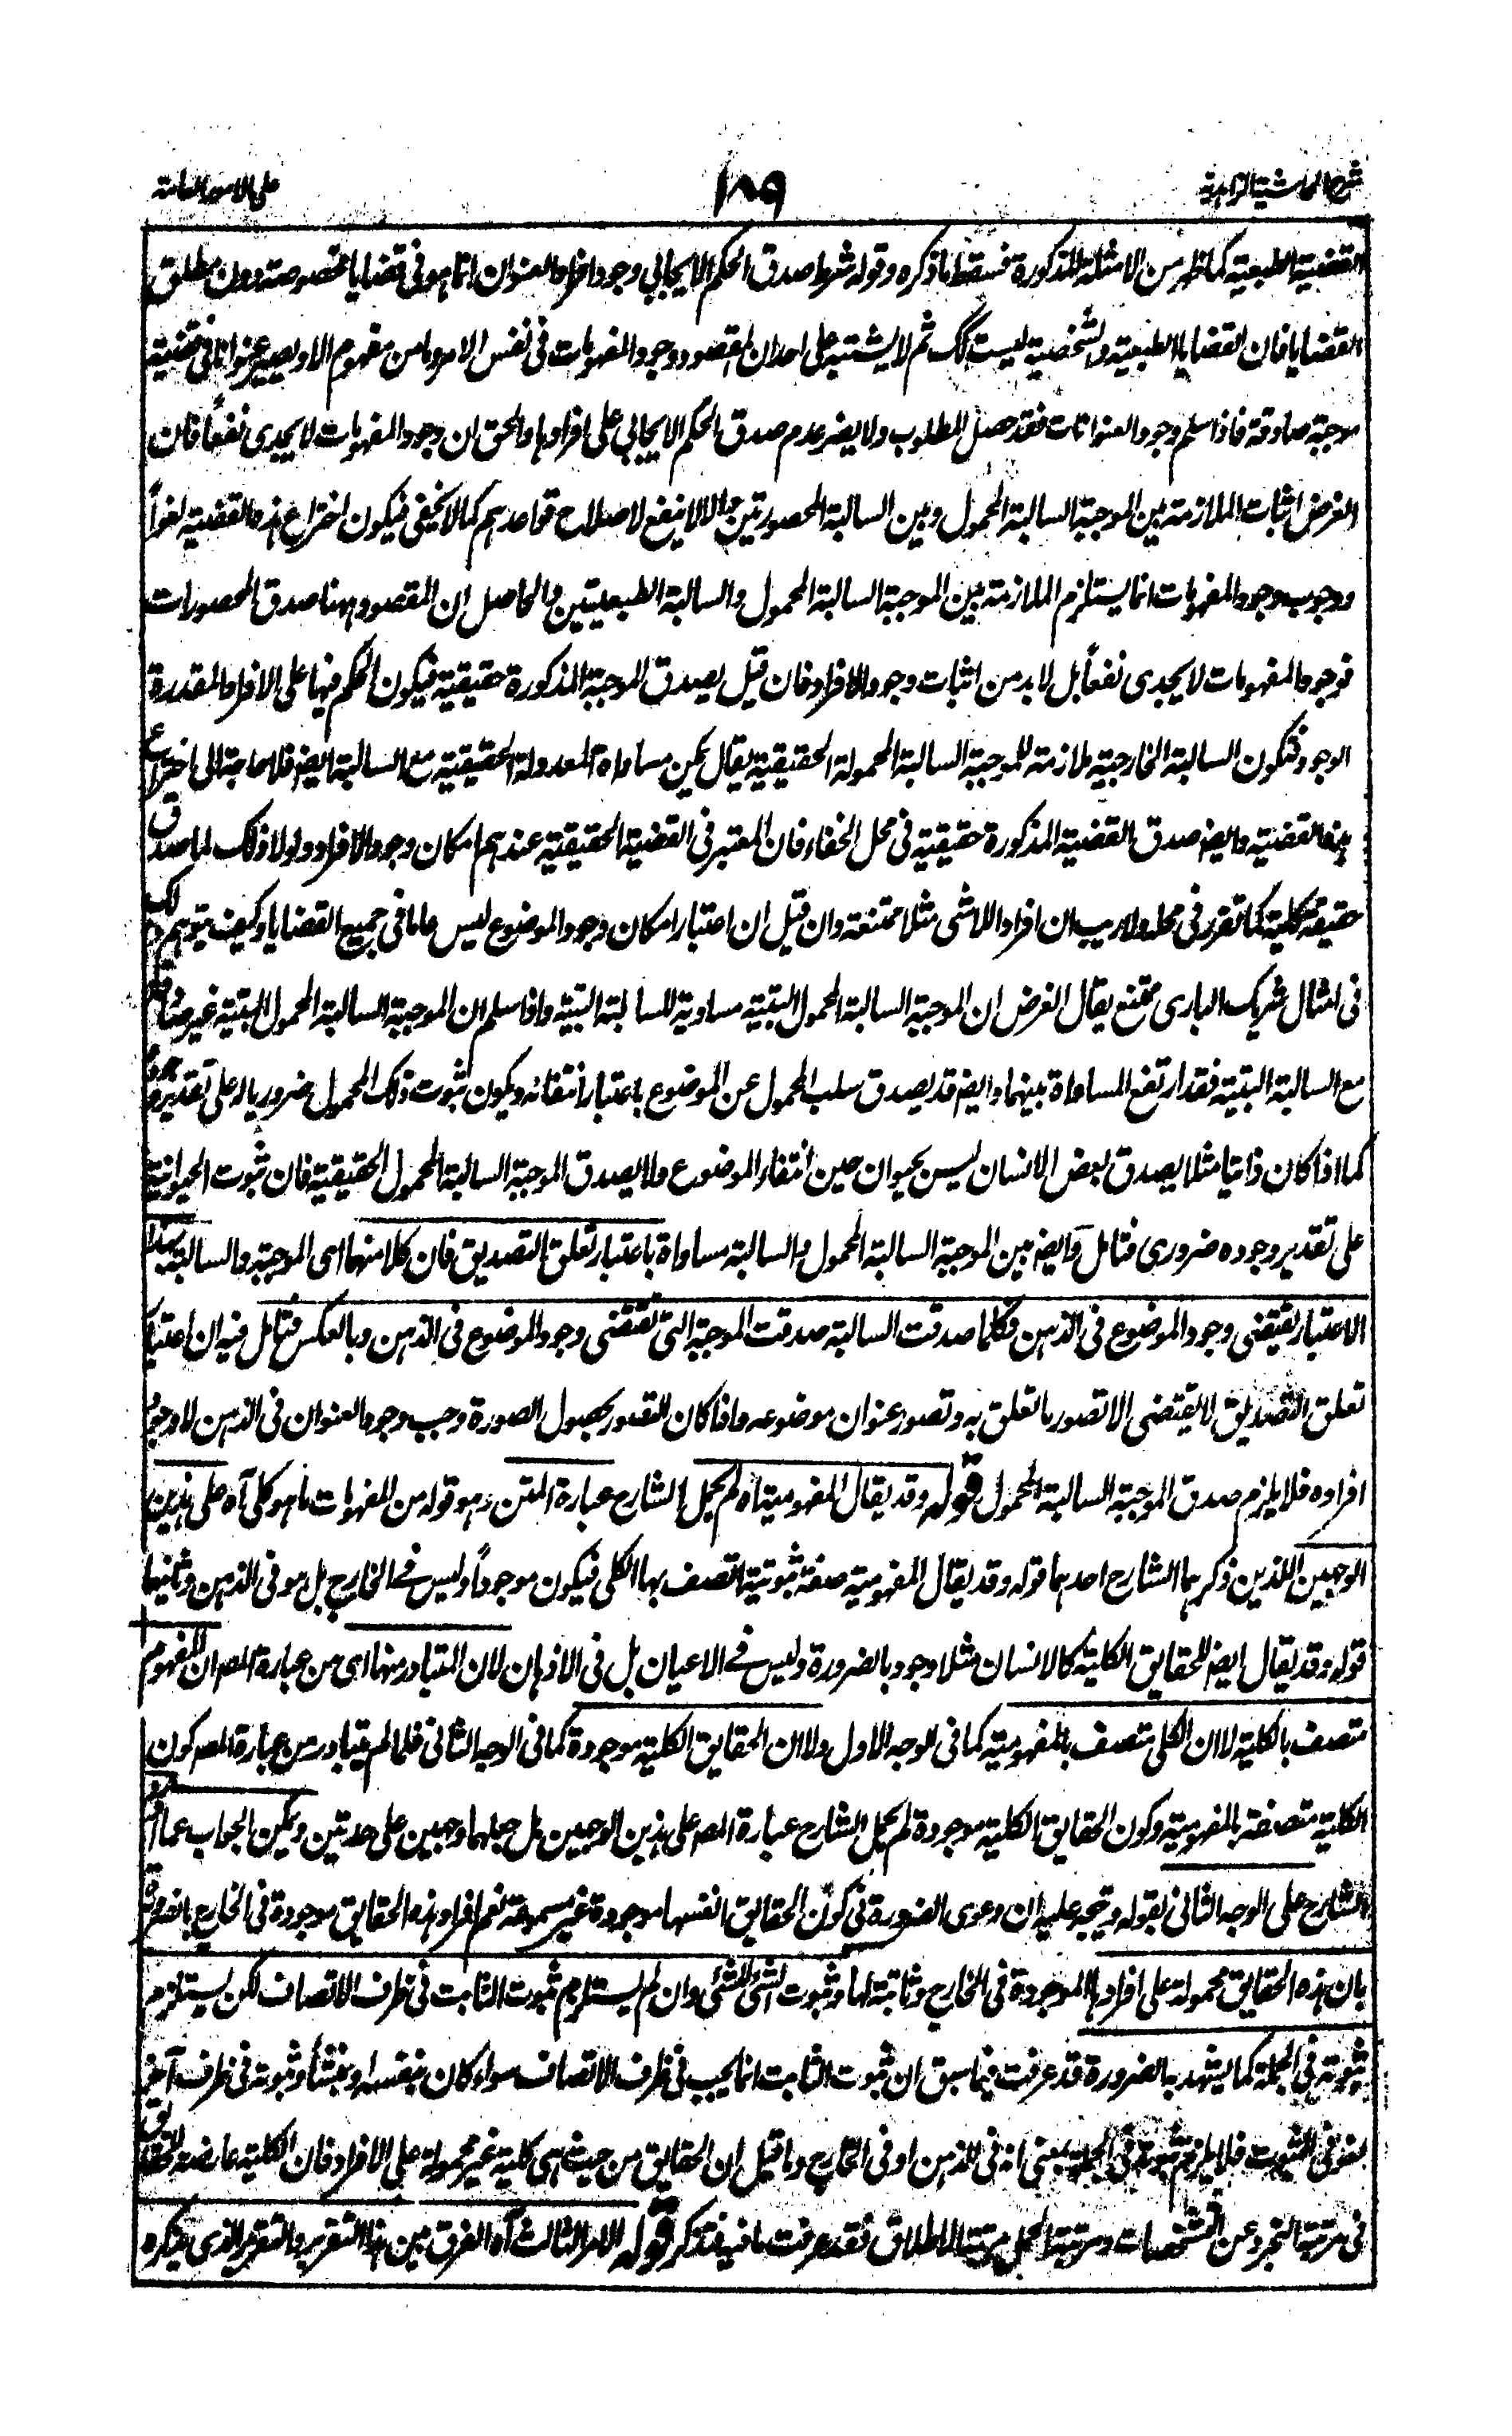 شرح الحاشية الزاهدية
١٨٩
على الامور العامة
القضية الطبعية كما ظهر من الامثلة المذكورة فسقط ما ذكره وقوله شرط صدق الحكم الايجابي وجود افراد العنوان انما هو في قضايا مخصوصة دون مطلق
القضايا فان القضايا الطبعية والشخصية ليست كك ثم لا يشتبه على احد ان المقصود وجود المفهومات في نفس الامر وما من مفهوم الا ويصير عنوانا في قضية
موجبة صادقة فاذا سلم وجود العنوانات فقد حصل المطلوب ولا يضر عدم صدق الحكم الايجابي على افرادها والحق ان وجود المفهومات لا يجدى نفعاً فان
الغرض اثبات الملازمة بين الموجبة السالبة المحمول وبين السالبة المحصورتين والا لا ينفع لاصلاح قواعدهم كما لا يخفى فيكون اختراع هذه القضية لغواً
ووجوب وجود المفهومات انما يستلزم الملازمة بين الموجبة السالبة المحمول والسالبة الطبعيتين والحاصل ان المقصود ههنا صدق المحصورات
فوجود المفهومات لا يجدى نفعاً بل لا بد من اثبات وجود الافراد فان قيل يصدق الموجبة المذكورة حقيقية فيكون الحكم فيها على الافراد المقدرة
الوجود فتكون السالبة الخارجية ملازمة للموجبة السالبة المحمولة الحقيقية يقال يمكن مساواة المعدولة الحقيقية مع السالبة ايضا فلا حاجة الى اختراع
هذه القضية وايضا صدق القضية المذكورة حقيقية في محل الخفاء فان المعتبر في القضية الحقيقية عندهم امكان وجود الافراد ولولا ذلك لما صدق
حقيقة كلية كما تقرر في محله ولا ريب ان افراد اللاشى مثلا ممتنعة وان قيل ان اعتبار امكان وجود الموضوع ليس عاما في جميع القضايا وكيف يتوهم ذلك
في امثال شريك البارى ممتنع يقال الغرض ان الموجبة السالبة المحمول البتية مساوية للسالبة البتية واذا سلم ان الموجبة السالبة المحمول البتية غير صادقة
مع السالبة البتية فقد ارتفع المساواة بينهما وايضا قد يصدق سلب المحمول عن الموضوع باعتبار انتفائه ويكون ثبوت ذلك المحمول ضروريا له على تقدير وجوده
كما اذا كان ذاتيا مثلا يصدق بعض الانسان ليس بحيوان حين انتفاء الموضوع ولا يصدق الموجبة السالبة المحمول الحقيقية فان ثبوت الحيوانية
على تقدير وجوده ضرورى فتامل وايضا بين الموجبة السالبة المحمول والسالبة مساواة باعتبار تعلق التصديق فان كلا منهما اى الموجبة والسالبة بهذا
الاعتبار يقتضى وجود الموضوع في الذهن فكلما صدقت السالبة صدقت الموجبة التى تقتضى وجود الموضوع في الذهن وبالعكس فتامل فيه ان اعتبار
تعلق التصديق لا يقتضى الا تصور ما تعلق به وتصور عنوان موضوعه واذا كان التصور بحصول الصورة وجب وجود العنوان في الذهن لا وجود
افراده فلا يلزم صدق الموجبة السالبة المحمول قوله وقد يقال المفهومية اه لم يحمل الشارح عبارة المتن وهو قوله من المفهومات ما هو كلى آه على هذين
الوجهين اللذين ذكرهما الشارح احدهما قوله وقد يقال المفهومية صفة ثبوتية اتصف بها الكلى فيكون موجوداً وليس في الخارج بل هو في الذهن وثانيهما
قوله وقد يقال ايضا للحقايق الكلية كالانسان مثلا وجود بالضرورة وليس في الاعيان بل في الاذهان لان المتبادر منها اى من عبارة المص ان المفهوم
متصف بالكلية لا ان الكلى متصف بالمفهومية كما في الوجه الاول ولا ان الحقايق الكلية موجودة كما في الوجه الثانى فلما لم يتبادر من عبارة المص كون
الكلية متصفة بالمفهومية وكون الحقايق الكلية موجودة لم يحمل الشارح عبارة المص على هذين الوجهين بل جعلهما وجهين على حدتين ويمكن الجواب عما اورد
الشارح على الوجه الثانى بقوله ويتجه عليه ان دعوى الضرورة في كون الحقايق انفسها موجودة غير مسموعة نعم افراد هذه الحقايق موجودة في الخارج بالضرورة
بان هذه الحقايق محمولة على افرادها الموجودة في الخارج وثابتة لها وثبوت الشئ للشئ وان لم يستلزم ثبوت الثابت في ظرف الاتصاف لكن يستلزم
ثبوته في الجملة كما يشهد به الضرورة قد عرفت فيما سبق ان ثبوت الثابت انما يجب في ظرف الاتصاف سواء كان بنفسه او بمنشأ وثبوته في ظرف آخر
لغو في الثبوت فلا يلزم ثبوته في الجملة بمعنى انه في الذهن او في الخارج وما قيل ان الحقايق من حيث هى كلية غير محمولة على الافراد فان الكلية عارضة للحقايق
في مرتبة التجرد عن التشخصات ومرتبة الحمل مرتبة الاطلاق فقد عرفت ما فيه فتذكر قوله الامر الثالث آه الفرق بين هذا التقرير والتقرير الذى يذكره